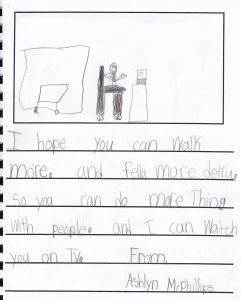 I hope you can walk
more. and felu more detru.
so you can do more Thing
with people. and I can Watch
you on Tv. From
Ashlyn McPhillips